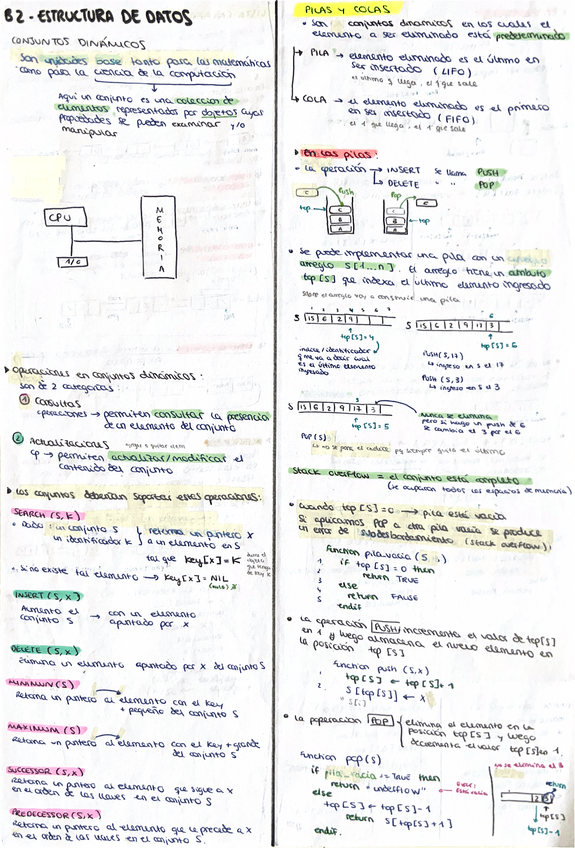 B2 - ESTRUCTURA DE DATOS
CONJUNTOS DINÁMICOS
Son unidades base tanto para las matemáticas
como para la ciencia de la computación
Aquí un conjunto es una colección de
elementos representados por objetos cuyas
propiedades se pueden examinar y/o
manipular
CPU
I/O
MEMORIA
▸ Operaciones en conjuntos dinámicos:
son de 2 categorías:
① Consultas
operaciones → permiten consultar la presencia
de un elemento del conjunto
② Actualizaciones
op → permiten actualizar/modificar el
contenido del conjunto
▸ Los conjuntos deberían soportar estas operaciones:
SEARCH (S, K)
• Dado: un conjunto S
un identificador K
retorna un puntero X
a un elemento en S
tal que Key[x] = K
• Si no existe tal elemento → Key[x] = NIL
INSERT (S, X)
Aumenta el
conjunto S → con un elemento
apuntado por X
DELETE (S, X)
Elimina un elemento apuntado por X del conjunto S
MINIMUN (S)
Retorna un puntero al elemento con el Key
+ pequeño del conjunto S
MAXIMUM (S)
Retorna un puntero al elemento con el Key + grande
del conjunto S
SUCCESSOR (S, X)
Retorna un puntero al elemento que sigue a X
en el orden de las llaves en el conjunto S
PREDECESSOR (S, X)
Retorna un puntero al elemento que le precede a X
en el orden de las llaves en el conjunto S.
PILAS Y COLAS
• Son conjuntos dinámicos en los cuales el
elemento a ser eliminado está predeterminado
PILA → elemento eliminado es el último en
ser insertado (LIFO)
el último q llega, el 1º que sale
COLA → el elemento eliminado es el primero
en ser insertado (FIFO)
el 1º que llega, el 1º que sale
▸ En las pilas:
• La operación → INSERT se llama PUSH
→ DELETE " " POP
C
Push
top
C
B
A
Pop
C
C
B
A
top
• Se puede implementar una pila con un
arreglo S[1...n]. El arreglo tiene un atributo
top[S] que indexa el último elemento ingresado
sobre el arreglo voy a construir una pila
1 2 3 4 5 6 7
S 15 6 2 9
top[S] = 4
indice/identificador
q me va a decir cuál
es el último elemento
ingresado
6
S 15 6 2 9 17 3
top[S] = 6
PUSH (S, 17)
↳ ingreso en S el 17
PUSH (S, 3)
↳ ingreso en S el 3
S 15 6 2 9 17 3
top[S] = 5
POP (S)
nunca se elimina
pero si hago un push de 6
se cambia el 3 por el 6
Stack overflow = el conjunto está completo
(se ocuparon todos los espacios de memoria)
• Cuando top[S] = 0 → pila está vacía
Si aplicamos POP a otra pila vacía se produce
un error de subdesbordamiento (stack overflow):
función pila_vacía (S)
1 if top[S] = 0 then
2 return TRUE
3 else
4 return FALSE
5 endif
• La operación PUSH incrementa el valor de top[S]
en 1 y luego almacena el nuevo elemento en
la posición top[S]
función push (S, X)
1. top[S] ← top[S] + 1
2. S[top[S]] ← X
• La operación POP elimina el elemento en la
posición top[S] y luego
decrementa el valor top[S] en 1.
función pop (S)
if pila_vacia == TRUE then
return "underflow"
else
top[S] ← top[S] - 1
return S[top[S] + 1]
endif.
no se elimina el 3
2 3
top[S]
top[S] - 1